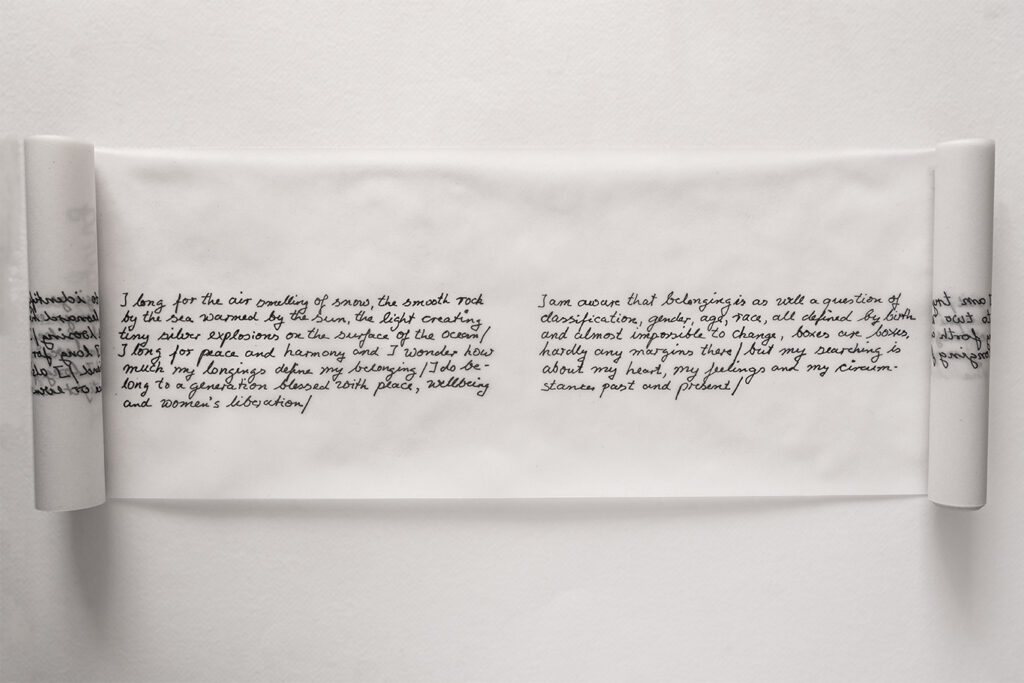 I long for the air smelling of snow, the smooth rock
by the sea warmed by the sun, the light creating
tiny silver explosions on the surface of the ocean/
I long for peace and harmony and I wonder how
much my longings define my belonging/I do be-
long to a generation blessed with peace, wellbeing
and women's liberation/
I am aware that belonging is as well a question of
classification, gender, age, race, all defined by birth
and almost impossible to change, boxes are boxes,
hardly any margins there/ but my searching is
about my heart, my feelings and my circum-
stances past and present/